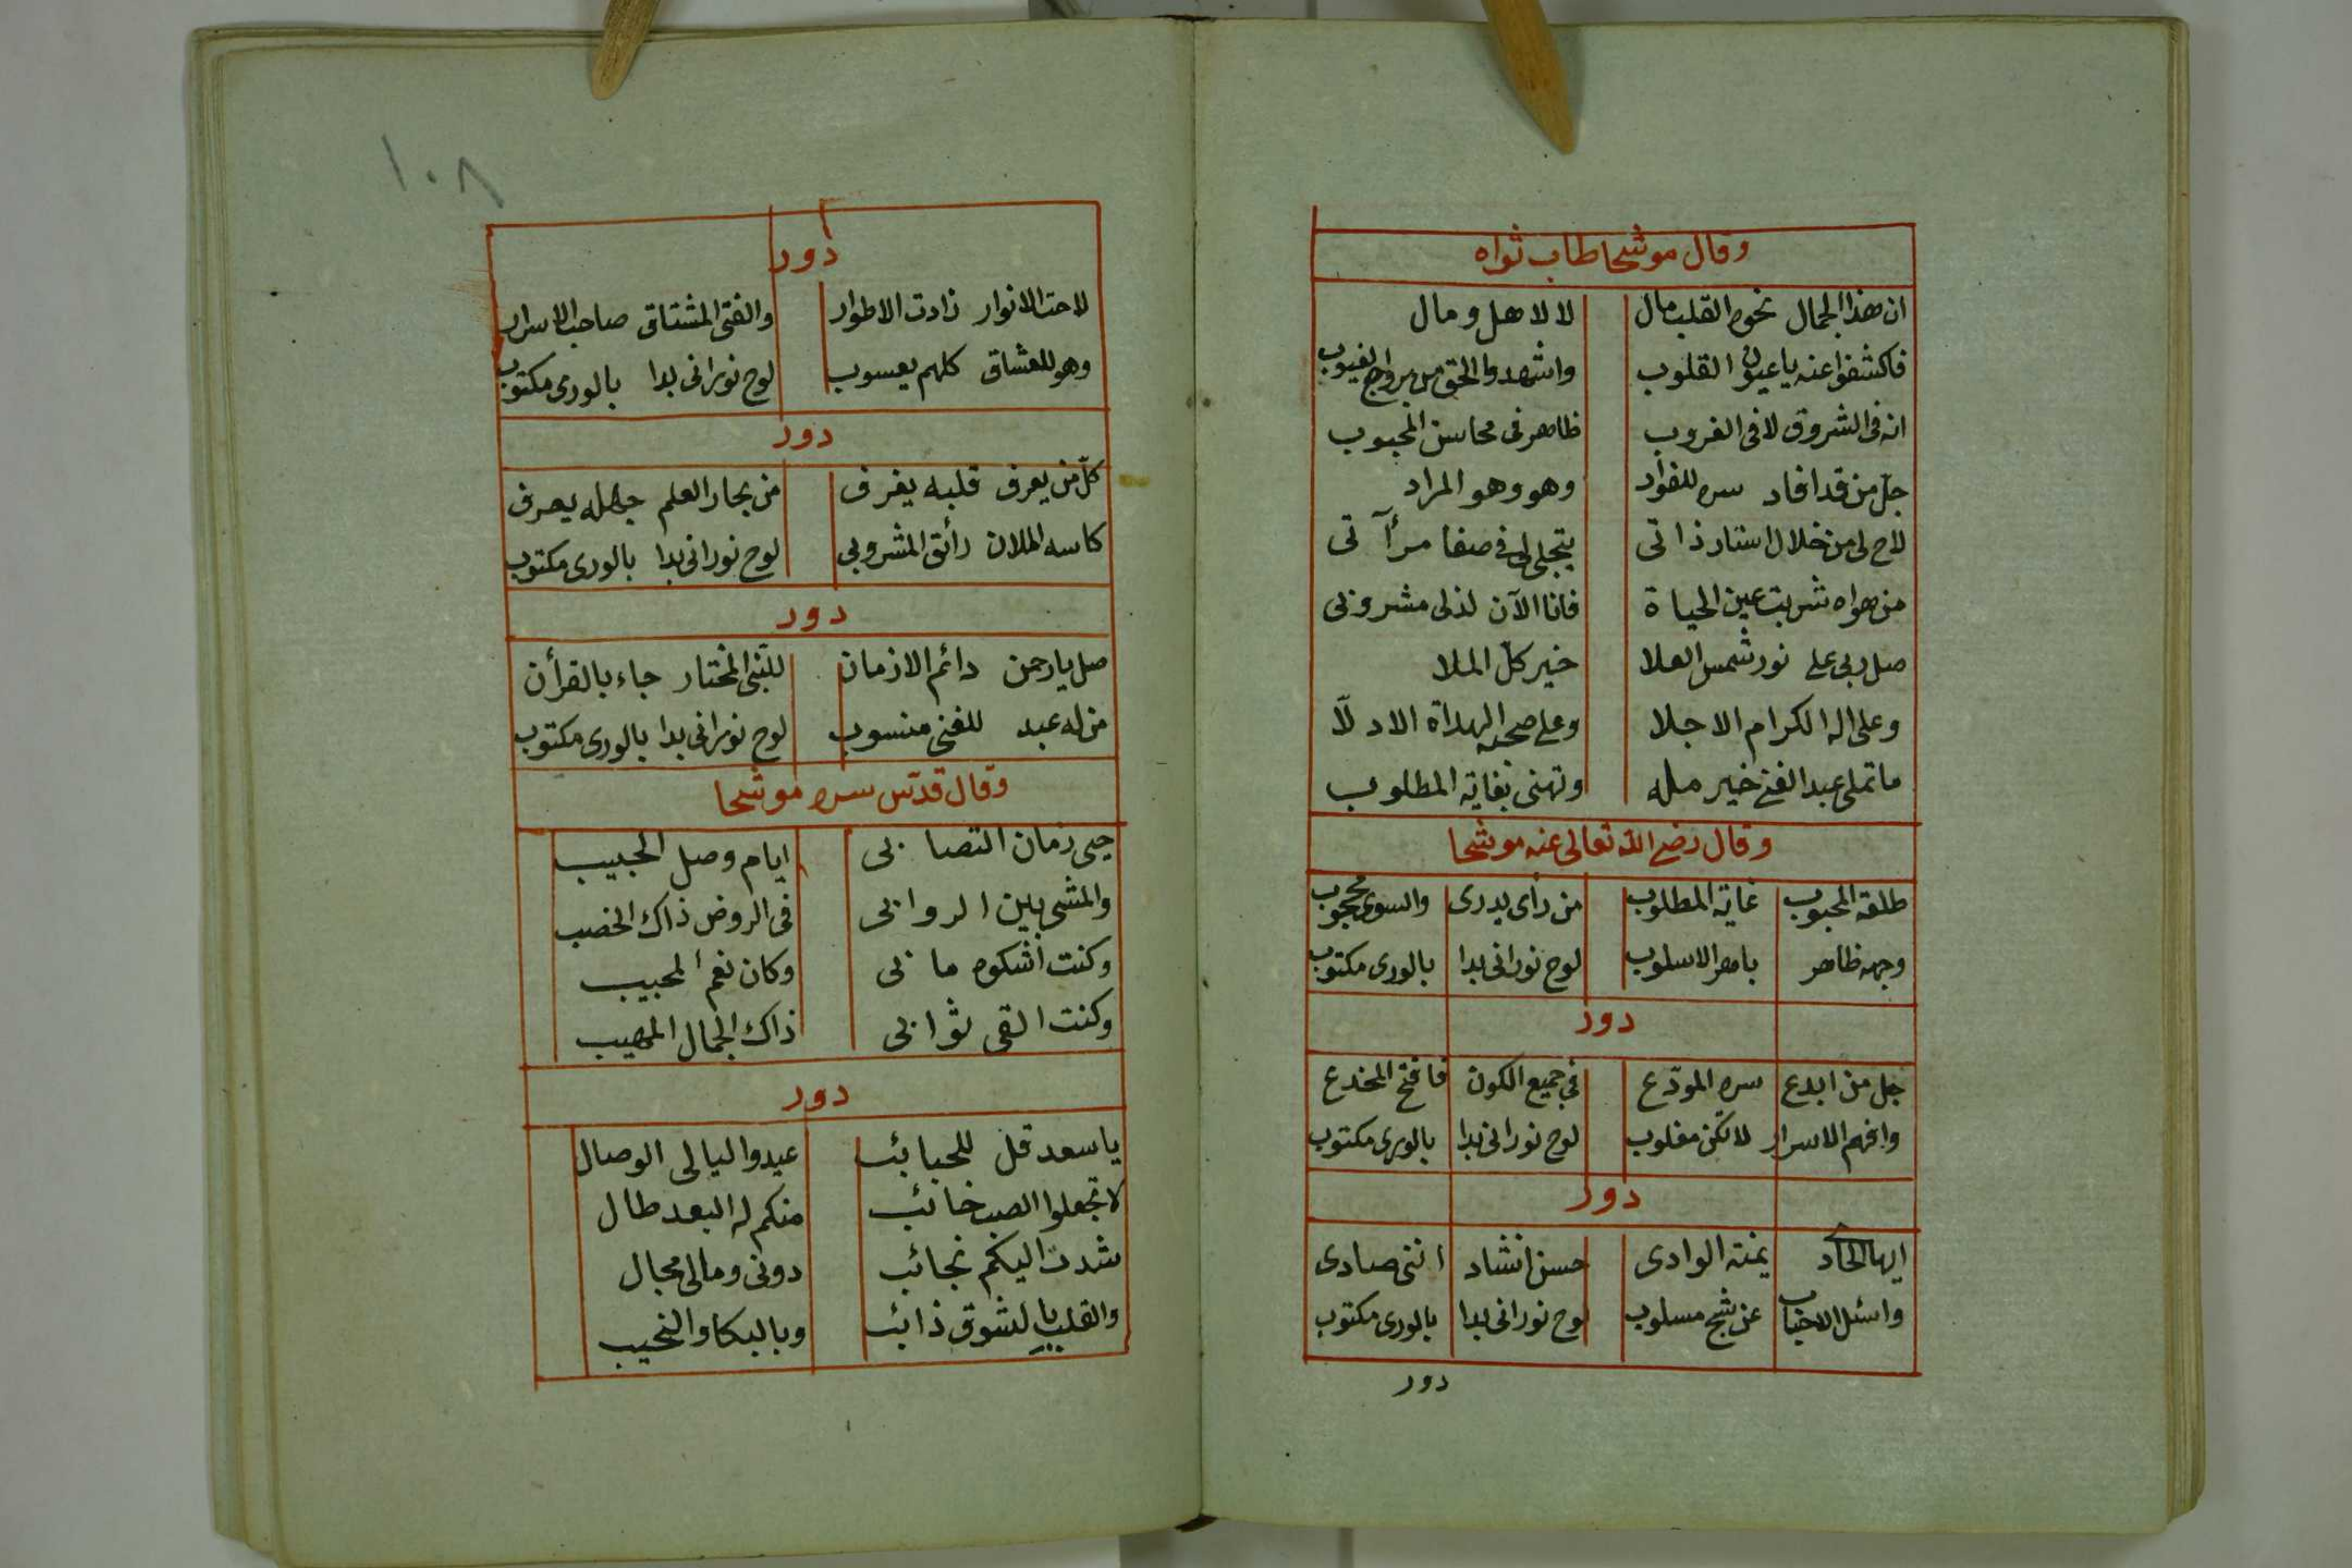 وقال موشحا طاب ثواه
ان هذا الجمال نحوه القلب مال لا لاهل ومال
فاكشفوا عنه يا عيون القلوب واشهدوا الحق من بروج الغيوب
انه فى الشروق لا فى الغروب ظاهر فى محاسن المحبوب
جلّ من قد افاد سره للفوأد وهو وهو المراد
لاح لى من خلال استار ذاتى يتجلى لى فى صفا مرآتى
من هواه شربت عين الحياة فانا الآن لذلى مشروبى
صل ربى على نور شمس العلا خير كلّ الملا
وعلى اله الكرام الاجلا وعلى صحبه الهداة الادلّا
ما تملى عبد الغنى خير مله وتهنى بغاية المطلوب
وقال رضى الله تعالى عنه موشحا
طلعة المحبوب غاية المطلوب من رأى يدرى والسوى محجوب
وجهه ظاهر باهر الاسلوب لوح نورانى بدا بالورى مكتوب
دور
جل من ابدع سره المودّع فى جميع الكون فافتح المخدع
وافهم الاسرار لا تكن مغلوب لوح نورانى بدا بالورى مكتوب
دور
ايها الحاد يمنة الوادى حسن انشاد اننى صادى
واسئل الاحباب عن شج مسلوب لوح نورانى بدا بالورى مكتوب
دور
١٠٨
دور
لاحت الانوار زادت الاطوار والفتى المشتاق صاحب الاسرار
وهو للعشاق كلهم يعسوب لوح نورانى بدا بالورى مكتوب
دور
كلّ من يعرف قلبه يغرف من بحار العلم جهله يصرف
كاسه الملان رائق المشروبى لوح نورانى بدا بالورى مكتوب
دور
صل يا رحمن دائم الازمان للنبى المختار جاء بالقرأن
من له عبد للغنى منسوب لوح نورانى بدا بالورى مكتوب
وقال قدّس سره موشحا
حيى زمان التصابى ايام وصل الحبيب
والمشى بين الروابى فى الروض ذاك الخصب
وكنت اشكوه مابى وكان نعم المجيب
وكنت القى ثوابى ذاك الجمال المهيب
دور
يا سعد قل للحبائب عيدوا ليالى الوصال
لا تجعلوا الصب خائب منكم له البعد طال
شدت اليكم نجائب دونى ومالى مجال
والقلب بالشوق ذائب وبالبكا والنحيب